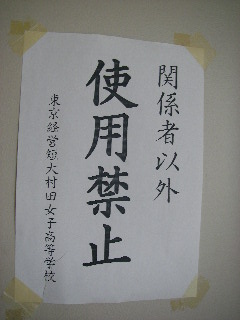 関係者以外
使用禁止
東京経営短大村田女子高等学校